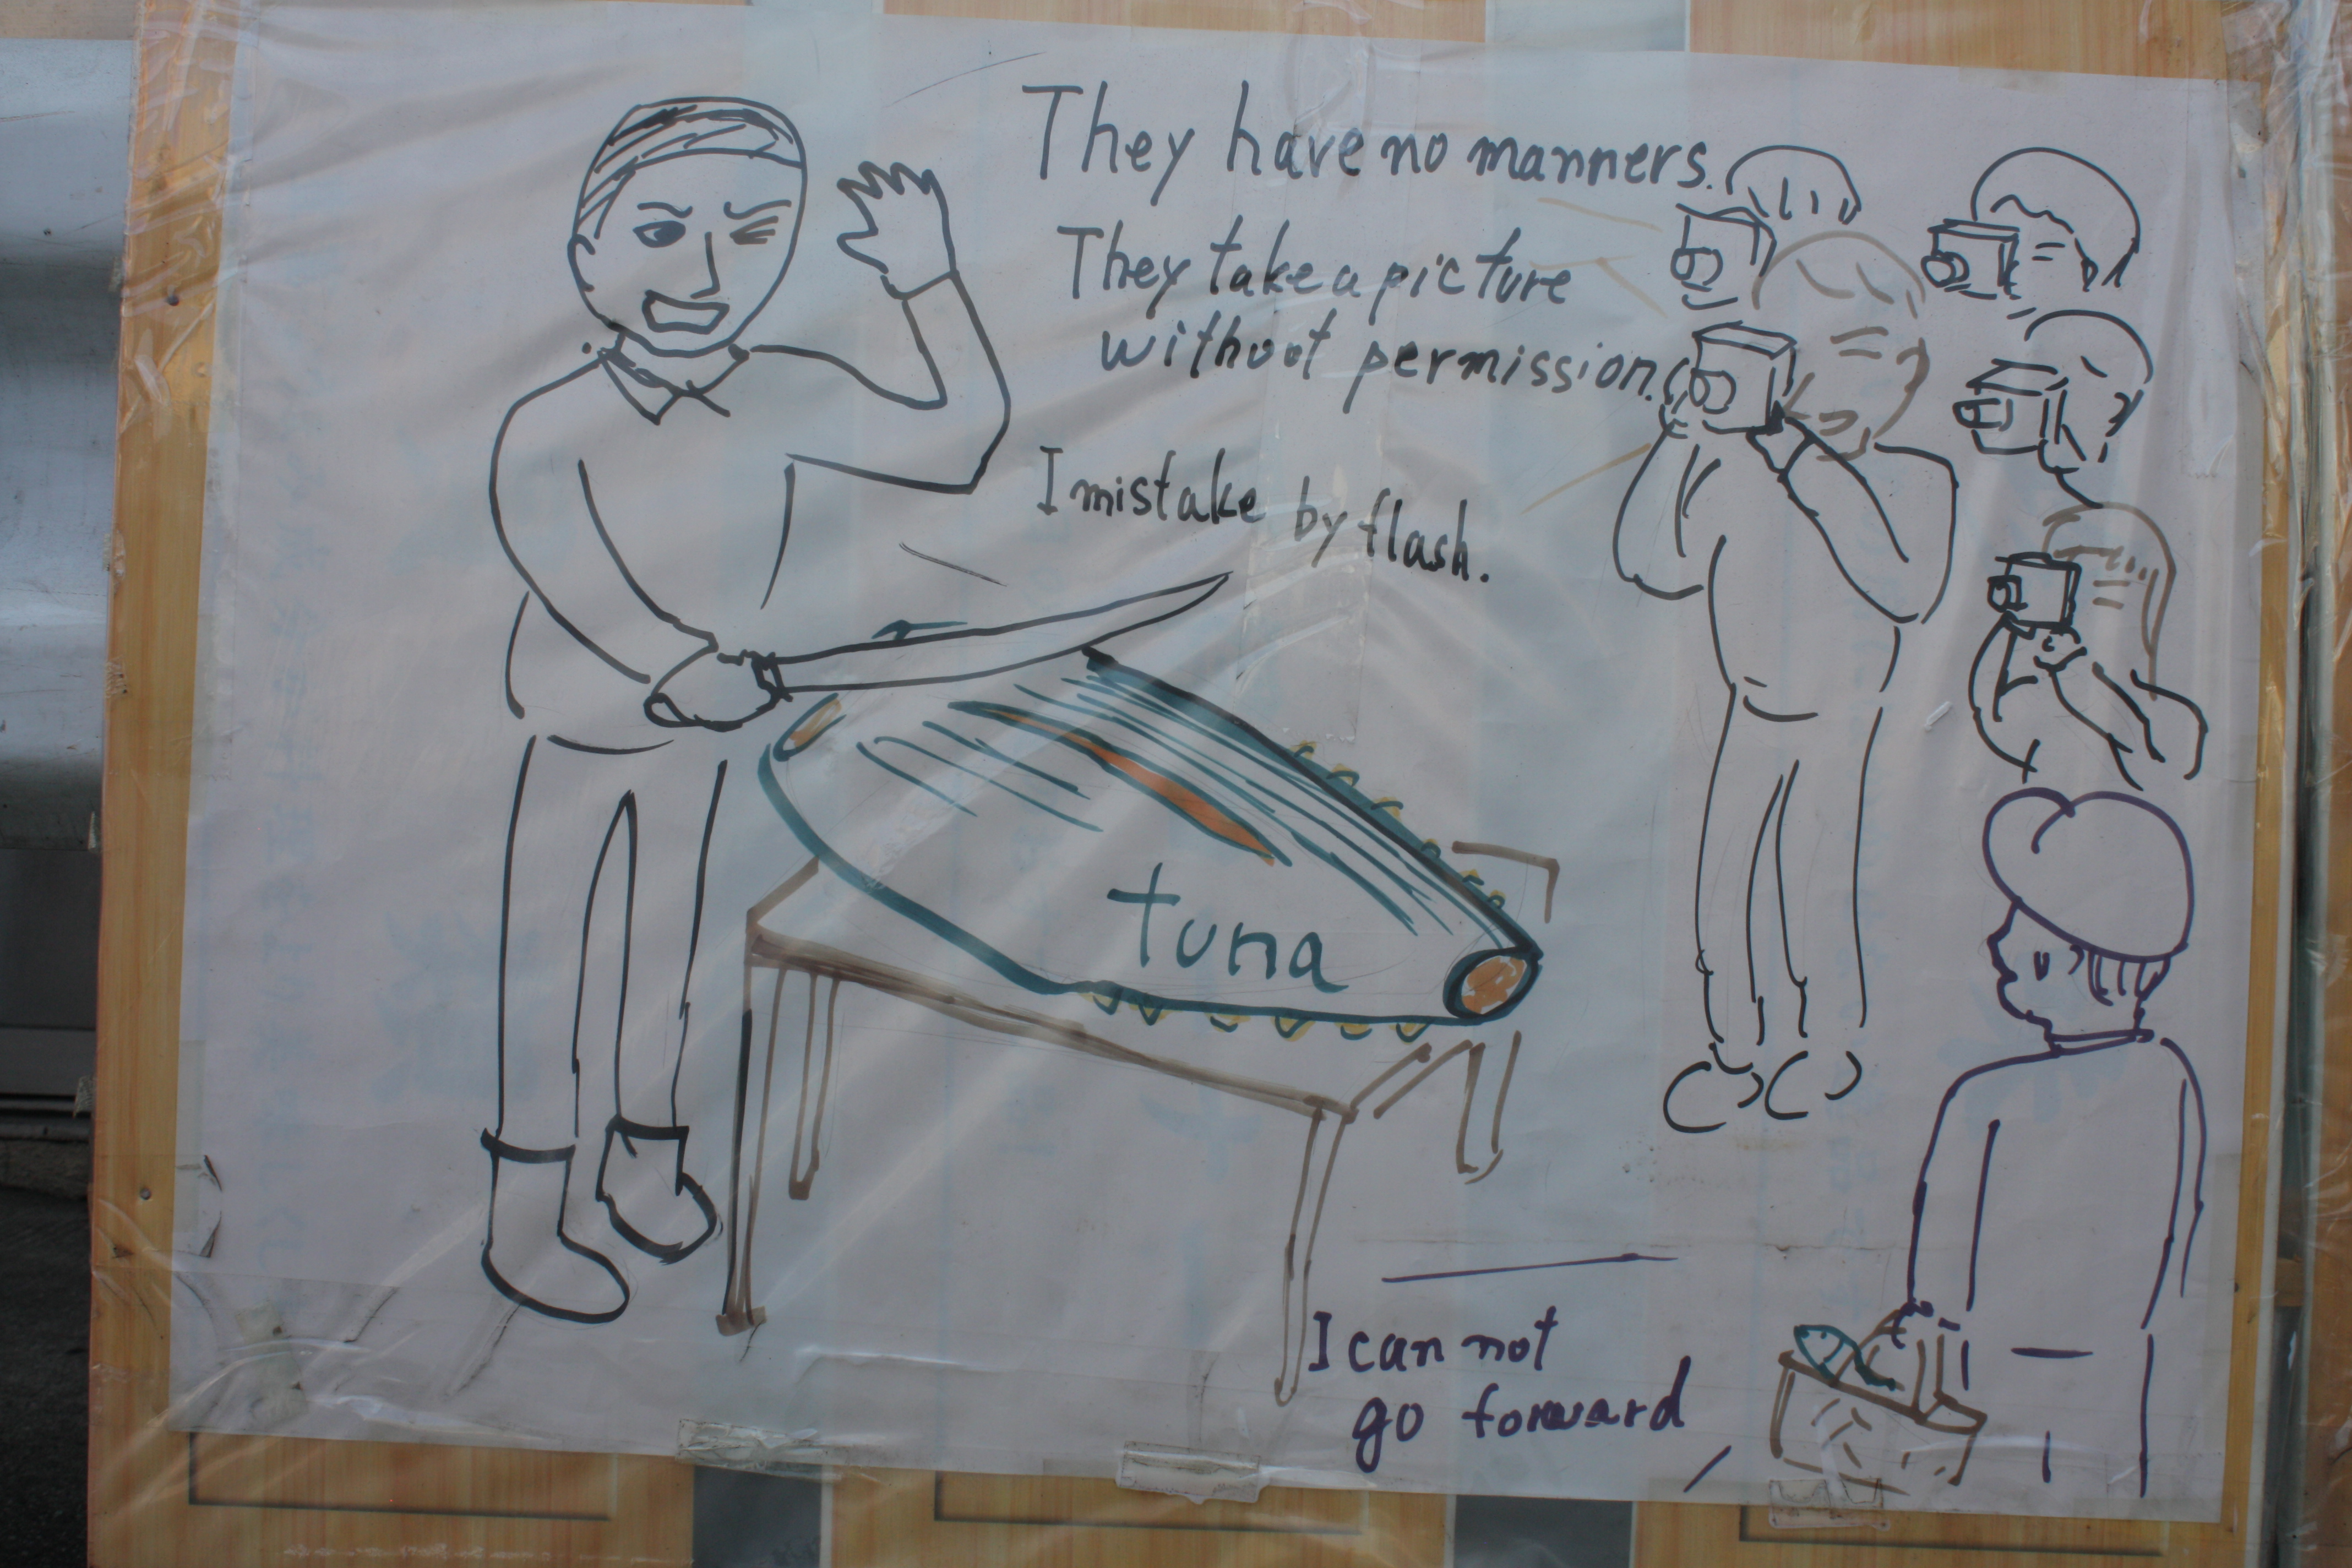 They have no manners.
They take a picture
without permission.
I mistake by flash.
tuna
I can not
go forward